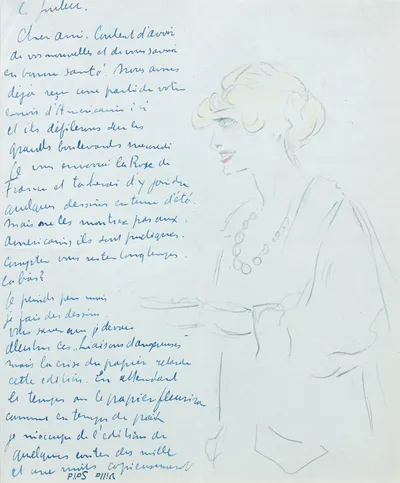 2 juillet.
Cher ami. Content d'avoir
de vos nouvelles et de vous savoir
en bonne santé. Nous avons
déjà reçu une partie de votre
envoi d'Américains ici
et ils défileront sur les
grands boulevards mercredi
je vous enverrai la Rose de
France et tacherai d'y joindre
quelques dessins en tenue d'été.
Mais ne les montrez pas aux
américains, ils sont pudiques.
Comptez vous rester longtemps
là bas?
Je peins peu mais
je fais des dessins.
Vous savez que je devais
illustrer ces "Liaisons dangereuses"
mais la crise du papier retarde
cette édition. En attendant
les temps où le papier fleurira
comme en temps de paix
je m'occupe de l'édition de
quelques contes des mille
et une nuits copieusement
Villa Said